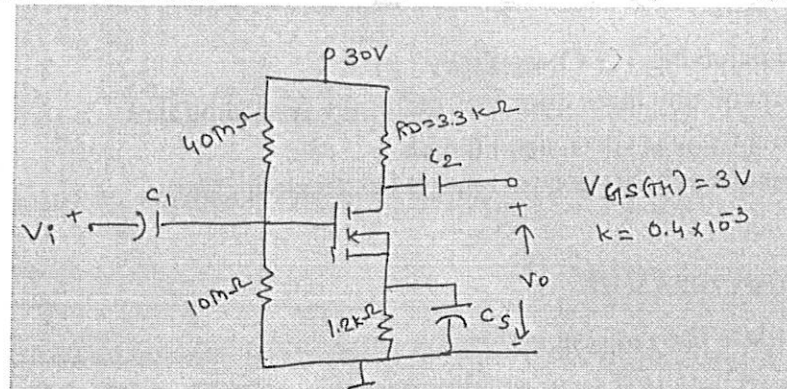 30V
40mΩ
RD=3.3 kΩ
C1
C2
Vi +
VGS(TH) = 3V
k = 0.4 x 10^-3
+
Vo
-
10mΩ
1.2kΩ
Cs